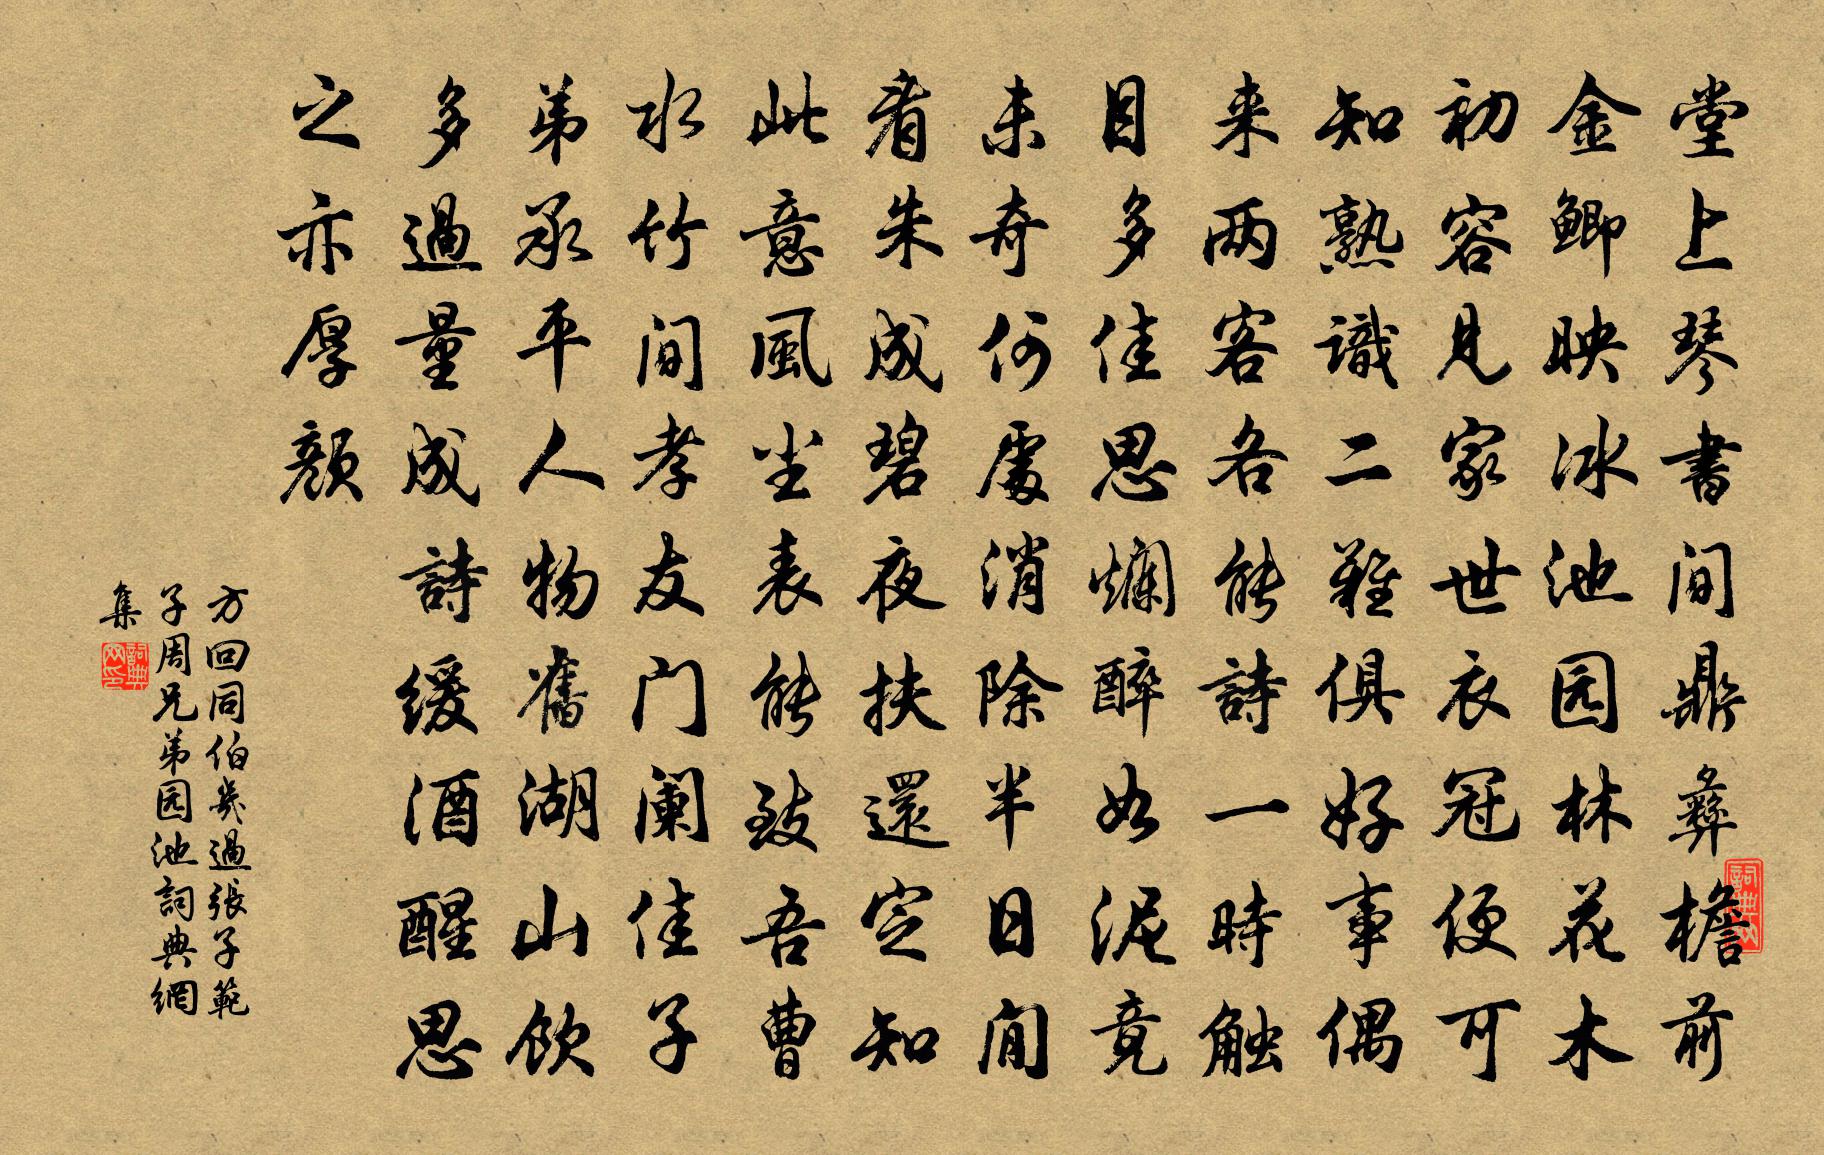 堂上琴書间鼎彝檐前
金鲫映冰池园林花木
初容見家世衣冠便可
知熟識二難俱好事偶
来两客各能詩一時触
目多佳思爛醉如泥竟
未奇何處消除半日间
看朱成碧夜扶還定知
此意風尘表能致吾曹
水竹间孝友门阑佳子
弟承平人物舊湖山飲
多過量成詩缓酒醒思
之亦厚顔
方回同伯幾過張子範
子周兄弟园池詞典網
集
詞典网印
詞典网